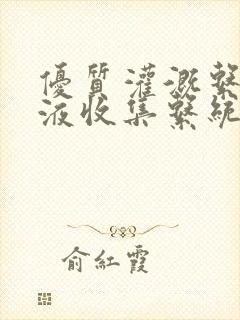 優質灌溉繫
液收集繫統
俞紅霞